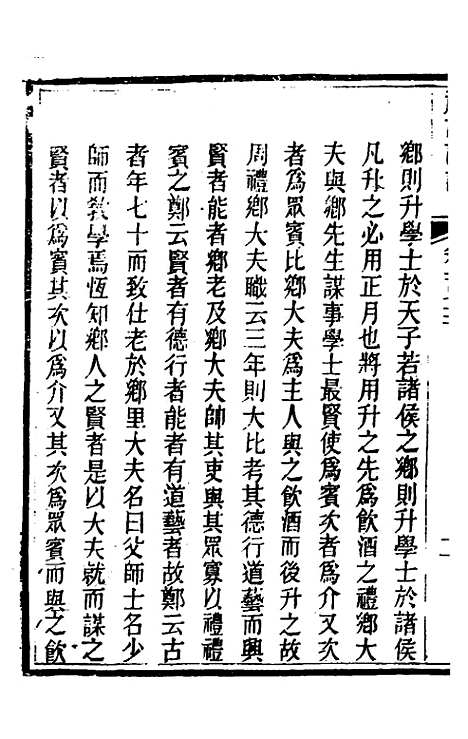 鄉則升學士於天子若諸侯之鄉則升學士於諸侯
凡升之必用正月也將用升之先爲飲酒之禮鄉大
夫與鄉先生謀事學士最賢使爲賓次者爲介又次
者爲眾賓比鄉大夫爲主人與之飲酒而後升之故
周禮鄉大夫職云三年則大比考其德行道藝而興
賢者能者鄉老及鄉大夫帥其吏與其眾寡以禮禮
賓之鄭云賢者有德行者能者有道藝者故鄭云古
者年七十而致仕老於鄉里大夫名曰父師士名少
師而敎學焉恆知鄉人之賢者是以大夫就而謀之
賢者以爲賓其次以爲介又其次爲眾賓而與之飲